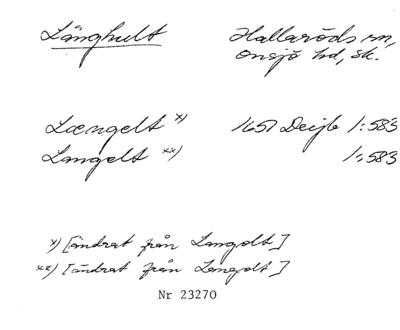 Långhult
Hallaröds sn,
Onsjö hd, Sk.
Længelt x) 1651 Decib 1:583
Langelt xx) 1:583
x) [ändrat från Langolt]
xx) [ändrat från Lengolt]
Nr 23270